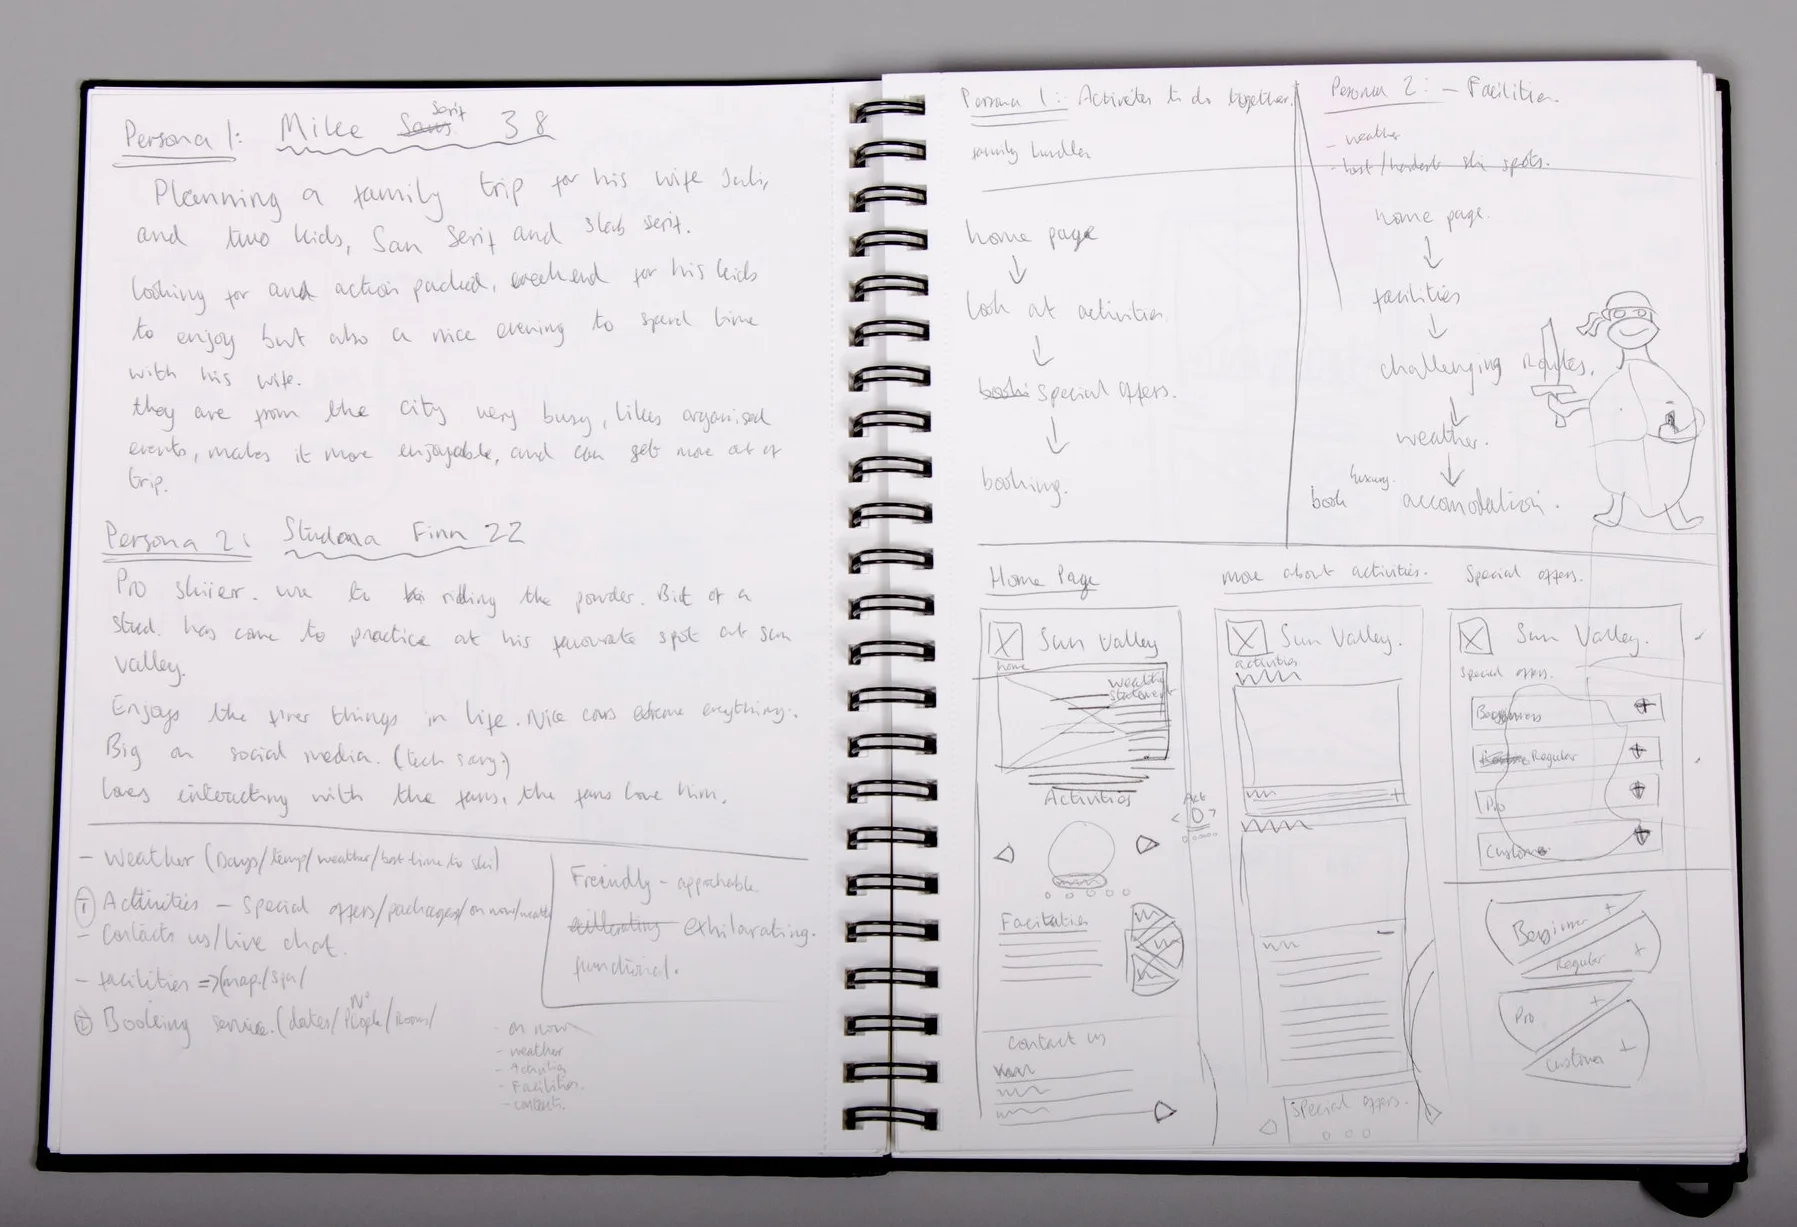 Persona 1: Mike Sans Serif 38
Planning a family trip for his wife
and two kids, San Serif and Slab serif.
looking for and action packed, weekend for his kids
to enjoy but also a nice evening to spend time
with his wife.
they are from the city very busy, likes organised
events, makes it more enjoyable, and can get more out of
trip.
Persona 2: Finn 22
Pro skiier. use to riding the powder. Bit of a
stud. has come to practice at his favourate spot at sun
valley.
Enjoys the finer things in life. Nice cars extreme everything.
Big on social media. (tech savy.)
Loves interacting with the fans, the fans love him.
- Weather (Days/temp/weather/best time to ski)
① Activities - special offers/packages/on now/weath
- Contacts us/live chat.
- facilities => (map/spa/
② Booking service. (dates/ N° People/rooms/
Friendly - approchable
exhilarating.
functional.
- on now
- weather
- Activities
- Facilities.
- contacts.
Persona 1: Activites to do together.
family bundles
home page
↓
look at activities
↓
special offers.
↓
booking.
Persona 2: - Facilities.
- weather
- best/hardest ski spots.
home page.
↓
facilities
↓
challenging Routes.
↓
weather.
↓
book luxury accomodation.
Home Page
Sun Valley
home
weather
Activities
Act
< 0 >
Facilities
contact us
more about activities.
Sun Valley.
activities
special offers.
Special offers.
Sun Valley.
Special offers.
Begginers
Regular
Pro
Custom
Begginer +
Regular +
Pro +
Custom +